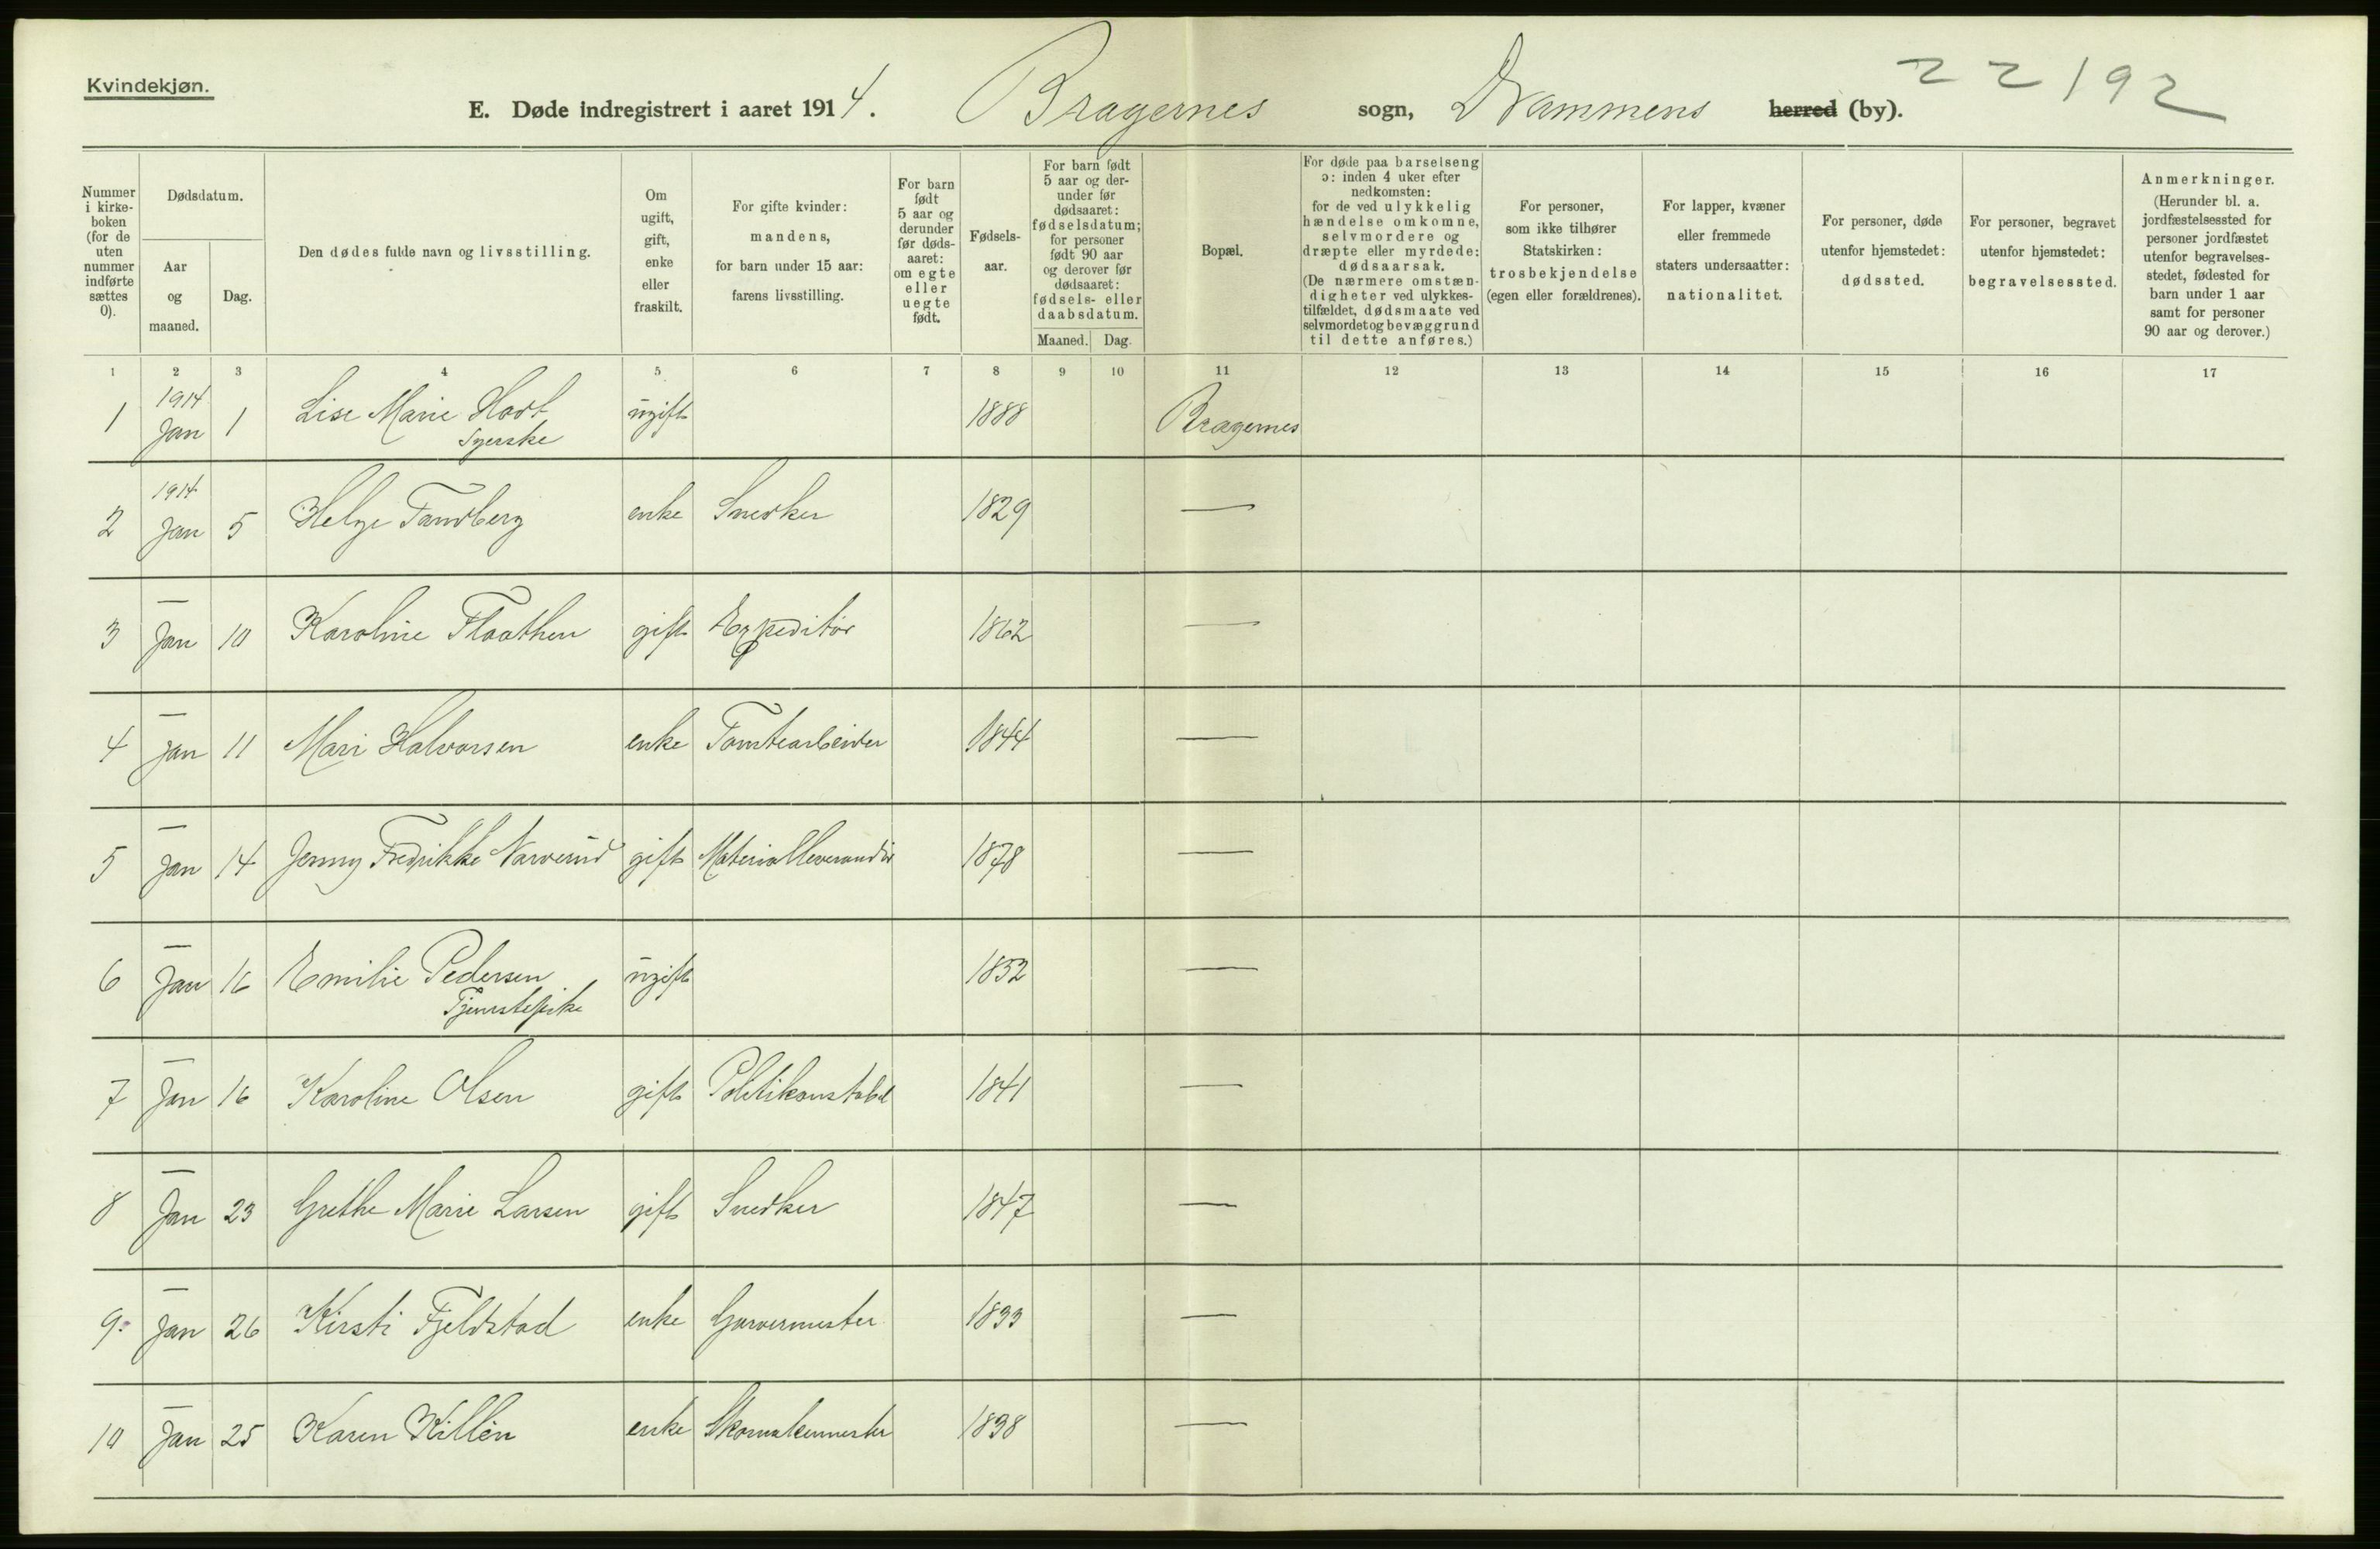 Kvindekjøn.
22192
E. Døde indregistrert i aaret 1914. Bragernes sogn, Drammens herred (by).
Nummer
i kirke-
boken
(for de
uten
nummer
indførte
sættes
0).
Dødsdatum.
Aar
og
maaned.
Dag.
Den dødes fulde navn og livsstilling.
Om
ugift,
gift,
enke
eller
fraskilt.
For gifte kvinder:
mandens,
for barn under 15 aar:
farens livsstilling.
For barn
født
5 aar og
derunder
før døds-
aaret:
om egte
eller
uegte
født.
Fødsels-
aar.
For barn født
5 aar og der-
under før
dødsaaret:
fødselsdatum;
for personer
født 90 aar
og derover før
dødsaaret:
fødsels- eller
daabsdatum.
Maaned. Dag.
Bopæl.
For døde paa barselseng
ɔ: inden 4 uker efter
nedkomsten:
for de ved ulykkelig
hændelse omkomne,
selvmordere og
dræpte eller myrdede:
dødsaarsak.
(De nærmere omstæn-
digheter ved ulykkes-
tilfældet, dødsmaate ved
selvmordet og bevæggrund
til dette anføres.)
For personer,
som ikke tilhører
Statskirken:
trosbekjendelse
(egen eller forældrenes).
For lapper, kvæner
eller fremmede
staters undersaatter:
nationalitet.
For personer, døde
utenfor hjemstedet:
dødssted.
For personer, begravet
utenfor hjemstedet:
begravelsessted.
Anmerkninger.
(Herunder bl. a.
jordfæstelsessted for
personer jordfæstet
utenfor begravelses-
stedet, fødested for
barn under 1 aar
samt for personer
90 aar og derover.)
1 2 3 4 5 6 7 8 9 10 11 12 13 14 15 16 17
1914
1 Jan 1 Lise Marie ugift 1888 Bragernes
Syerske
1914
2 Jan 5 Helge Tandberg enke Snedker 1829 —
—
3 Jan 10 Karoline Flaathen gift Expeditør 1862 —
—
4 Jan 11 Mari Halvorsen enke Tomtearbeider 1844 —
—
5 Jan 14 Jenny Fredrikke Narverud gift Materialleverandør 1878 —
—
6 Jan 16 Emilie Pedersen ugift 1852 —
Tjenestepike
—
7 Jan 16 Karoline Olsen gift Politikonstabel 1841 —
—
8 Jan 23 Grethe Marie Larsen gift Snedker 1847 —
—
9. Jan 26 Kirsti Fjeldstad enke Garvermester 1833 —
—
10 Jan 25 Karen Killén enke Skomakermester 1838 —